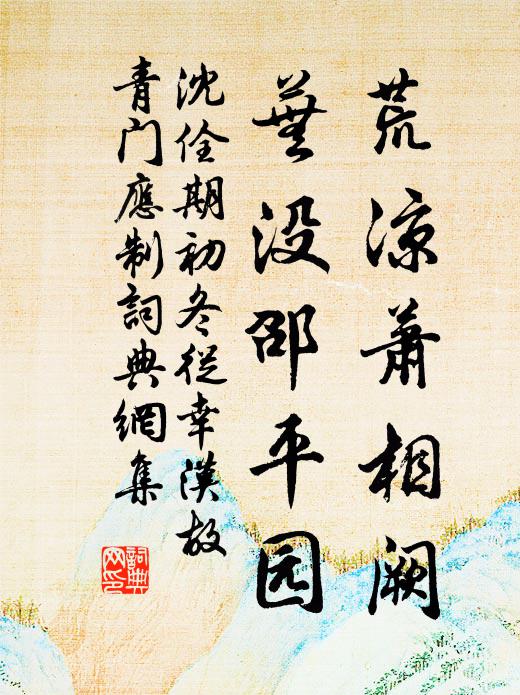 荒凉萧相阙
芜没邵平园
沈佺期初冬從幸漢故
青门應制詞典網集
詞典网印